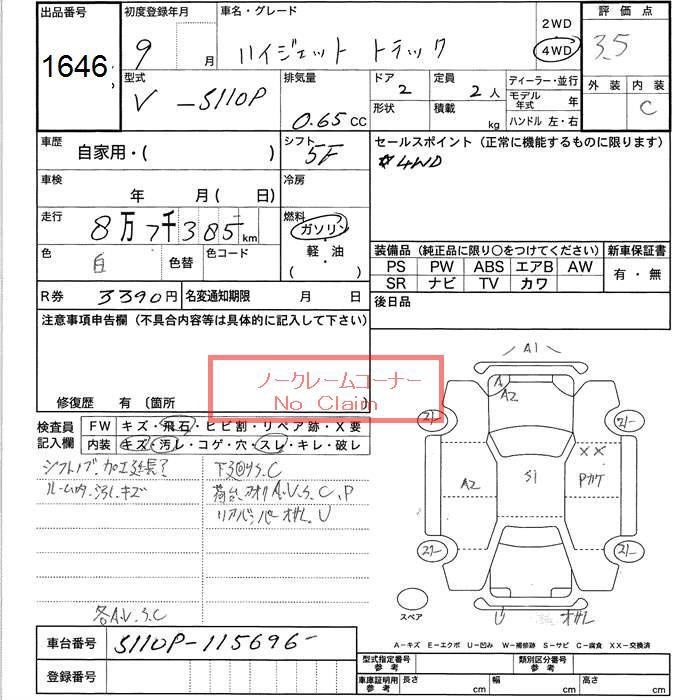 出品番号 初度登録年月 車名・グレード 2WD 評価点
1646 9月 ハイジェット トラック 4WD 3.5
型式 排気量 ドア 定員 ディーラー・並行 外装 内装
V-S110P 0.65cc 2 2人 モデル年式 年 C
形状 積載 kg ハンドル 左・右
車歴 自家用・( ) シフト 5F セールスポイント(正常に機能するものに限ります)
#4WD
車検 年 月( 日) 冷房
走行 8万7千385km 燃料 ガソリン
軽・油
( )
色 白 色替 色コード
装備品(純正品に限り〇をつけてください) 新車保証書
PS PW ABS エアB AW 有・無
SR ナビ TV カワ
R券 3390円 名変通知期限 月 日 後日品
注意事項申告欄(不具合内容等は具体的に記入して下さい)
ノークレームコーナー
No Claim
修復歴 有 〔箇所 〕
検査員記入欄 FW キズ・飛石・ヒビ割・リペア跡・X要
内装 キズ・汚レ・コゲ・穴・スレ・キレ・破レ
シフトノブ、加工延長了
ルーム内、汚レ、キズ
下廻りS.C
荷台、アオリA.V.S.C.P
リアバンパーオサレ、U
各A.V.S.C
A1
A
A2
21- 21-
XX
A2 S1 Pカケ
21- 21-
スペア U オサレ
A-キズ E-エクボ U-凹み W-補修跡 S-サビ C-腐食 XX-交換済
車台番号 S110P-115696-
登録番号
型式指定番号 参考 類別区分番号 参考
車庫証明用 参考 長さ cm 幅 cm 高さ cm